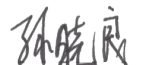 孙晓良